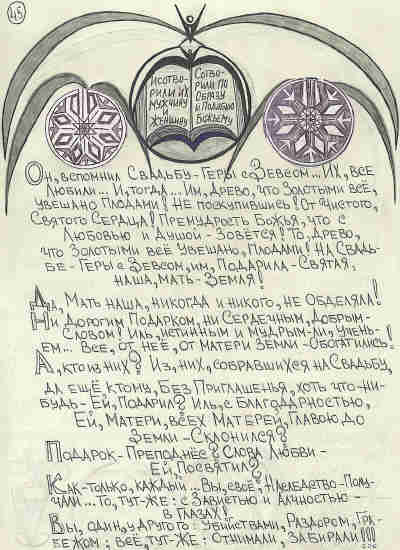 45
И СОТВО-
РИЛИ ИХ
МУЖЧИНУ
И
ЖЕНЩИНУ
СОТВО-
РИЛИ ПО
ОБРАЗУ
И ПОДОБИЮ
БОЖЬЕМУ
Он, вспомнил Свадьбу-Геры с Зевсом... Их, все
Любили... И, тогда... Им, древо, что Золотыми всё,
увешано Плодами! Не поскупившись! От Чистого,
Святого Сердца! Премудрость Божья, что с
Любовью и Душой-Зовётся! То, древо,
что Золотыми всё увешано, Плодами! На Свадь-
бе-Геры с Зевсом, им, Подарила-Святая,
Наша, Мать-Земля!
Да, Мать наша, никогда и никого, не Обделяла!
Ни Дорогим Подарком, ни Сердечным, Добрым-
Словом! Иль, истинным и Мудрым-ли, ученье-
ем... Все, от неё, от Матери Земли-Обогатились!
А, кто из них? Из, них, собравшихся на Свадьбу,
да ещё к тому, Без Приглашенья, хоть что-ни-
будь-Ей, Подарил? Иль, с Благодарностью,
Ей, Матери, всех Матерей, Главою до
Земли-Склонился?
Подарок-Преподнёс? Слова Любви-
Ей, Посвятил?
Как-только, каждый... Вы, своё, Наследство-Полу-
чали... То, тут-же: с Завистью и Алчностью-
в Глазах!
Вы, один, у другого: Убийствами, Раздором, Гра-
бежом; всё, тут-же: Отнимали, Забирали!!!